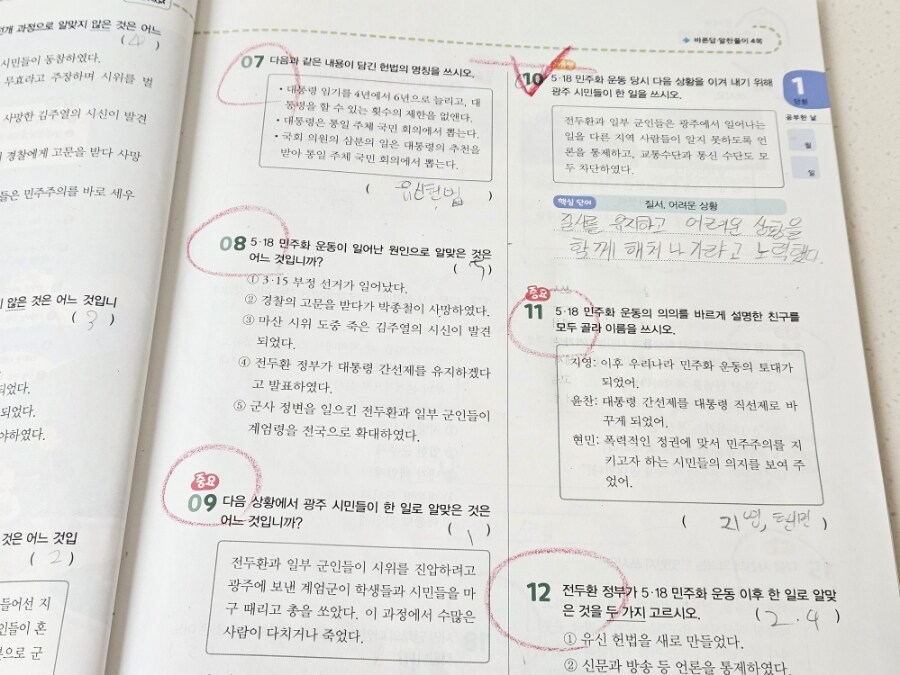 전개 과정으로 알맞지 않은 것은 어느
( 4 )
시민들이 동참하였다.
무효라고 주장하며 시위를 벌
사망한 김주열의 시신이 발견
경찰에게 고문을 받다 사망
들은 민주주의를 바로 세우
않은 것은 어느 것입니
( 3 )
되었다.
되었다.
야하였다.
것은 어느 것입
( 2 )
들어선 지
인들이 혼
분으로 군
07 다음과 같은 내용이 담긴 헌법의 명칭을 쓰시오.
• 대통령 임기를 4년에서 6년으로 늘리고, 대
통령을 할 수 있는 횟수의 제한을 없앤다.
• 대통령은 통일 주체 국민 회의에서 뽑는다.
• 국회 의원의 삼분의 일은 대통령의 추천을
받아 통일 주체 국민 회의에서 뽑는다.
( 유신헌법 )
08 5·18 민주화 운동이 일어난 원인으로 알맞은 것은
어느 것입니까? ( 5 )
① 3·15 부정 선거가 일어났다.
② 경찰의 고문을 받다가 박종철이 사망하였다.
③ 마산 시위 도중 죽은 김주열의 시신이 발견
되었다.
④ 전두환 정부가 대통령 간선제를 유지하겠다
고 발표하였다.
⑤ 군사 정변을 일으킨 전두환과 일부 군인들이
계엄령을 전국으로 확대하였다.
중요
09 다음 상황에서 광주 시민들이 한 일로 알맞은 것은
어느 것입니까? ( 1 )
전두환과 일부 군인들이 시위를 진압하려고
광주에 보낸 계엄군이 학생들과 시민들을 마
구 때리고 총을 쏘았다. 이 과정에서 수많은
사람이 다치거나 죽었다.
바른답·알찬풀이 4쪽
10 5·18 민주화 운동 당시 다음 상황을 이겨 내기 위해
광주 시민들이 한 일을 쓰시오.
전두환과 일부 군인들은 광주에서 일어나는
일을 다른 지역 사람들이 알지 못하도록 언
론을 통제하고, 교통수단과 통신 수단도 모
두 차단하였다.
핵심 단어 질서, 어려운 상황
질서를 유지하고 어려운 상황을
함께 해처 나가려고 노력했다.
중요
11 5·18 민주화 운동의 의의를 바르게 설명한 친구를
모두 골라 이름을 쓰시오.
지영: 이후 우리나라 민주화 운동의 토대가
되었어.
윤찬: 대통령 간선제를 대통령 직선제로 바
꾸게 되었어.
현민: 폭력적인 정권에 맞서 민주주의를 지
키고자 하는 시민들의 의지를 보여 주
었어.
( 지영, 현민 )
12 전두환 정부가 5·18 민주화 운동 이후 한 일로 알맞
은 것을 두 가지 고르시오. ( 2·4 )
① 유신 헌법을 새로 만들었다.
② 신문과 방송 등 언론을 통제하였다.
1
단원
공부한 날
월
일